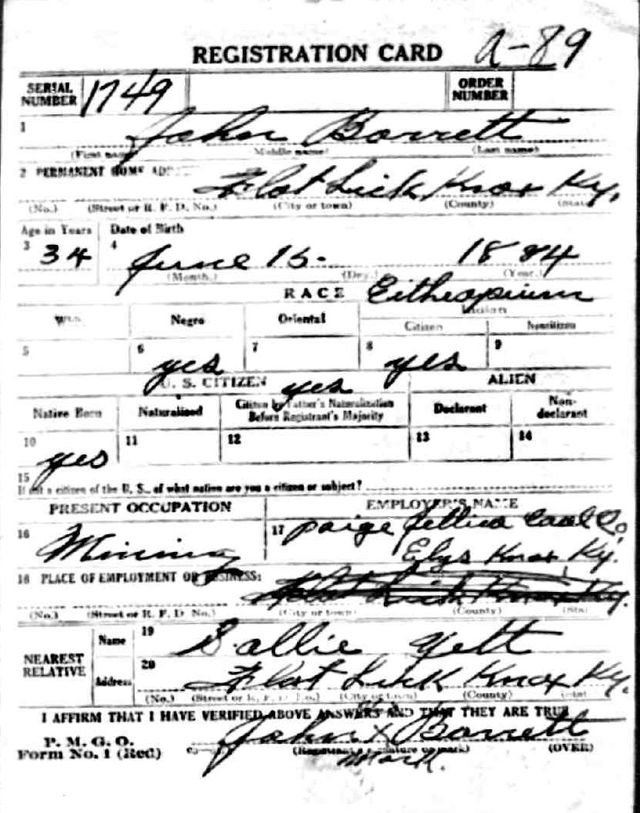 REGISTRATION CARD A-89
SERIAL NUMBER 1749 ORDER NUMBER
1 John Barrett
(First name) (Middle name) (Last name)
2 PERMANENT HOME ADD Flat Lick Knox Ky.
(No.) (Street or R. F. D. No.) (City or town) (County) (State)
Age in Years Date of Birth
3 34 4 June 15- 1884
(Month.) (Day.) (Year.)
RACE Eitheopium
Negro Oriental Indian
Citizen Noncitizen
5 6 yes 7 8 yes 9
U. S. CITIZEN yes ALIEN
Native Born Naturalized Citizen by Father's Naturalization Before Registrant's Majority Declarant Non-declarant
10 yes 11 12 13 14
15 If not a citizen of the U. S., of what nation are you a citizen or subject?
PRESENT OCCUPATION EMPLOYER'S NAME
16 Mining 17 Paige Jellico Coal Co
Elys Knox Ky.
18 PLACE OF EMPLOYMENT OR BUSINESS: Flat Lick Knox Ky.
(No.) (Street or R. F. D. No.) (City or town) (County) (State)
NEAREST RELATIVE Name 19 Sallie Yett
Address 20 Flat Lick Knox Ky.
(No.) (Street or R. F. D. No.) (City or town) (County) (State)
I AFFIRM THAT I HAVE VERIFIED ABOVE ANSWERS AND THAT THEY ARE TRUE
P. M. G. O.
Form No. 1 (Red) John X Barrett
(Registrant's signature or mark) (OVER)
mark.